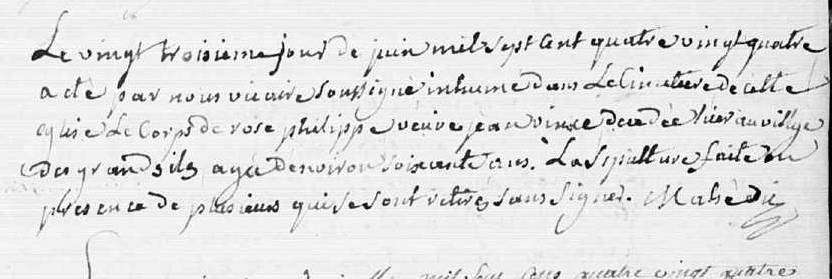 Le vingt troisieme jour de juin mil sept cent quatre vingt quatre
a eté par nous vicaire soussigné inhumé dans Le Cimetiere de cette
eglise Le Corps de rose philippe veuve jean decedée hier au village
des grands ils agée denviron soixante ans. La sepulture faite en
presence de plusieurs qui se sont retirés sans signer. Mahé
mil sept cens quatre vingt quatre